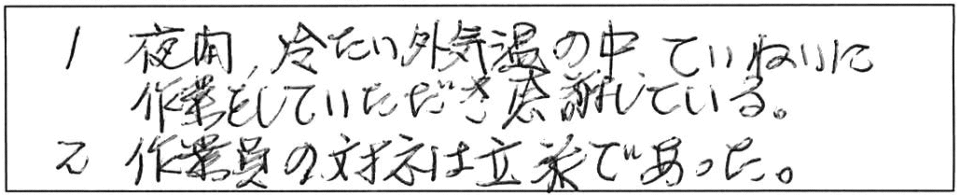 1 夜間、冷たい外気温の中 ていねいに
作業をしていただき感謝している。
2 作業員の対応は立派であった。